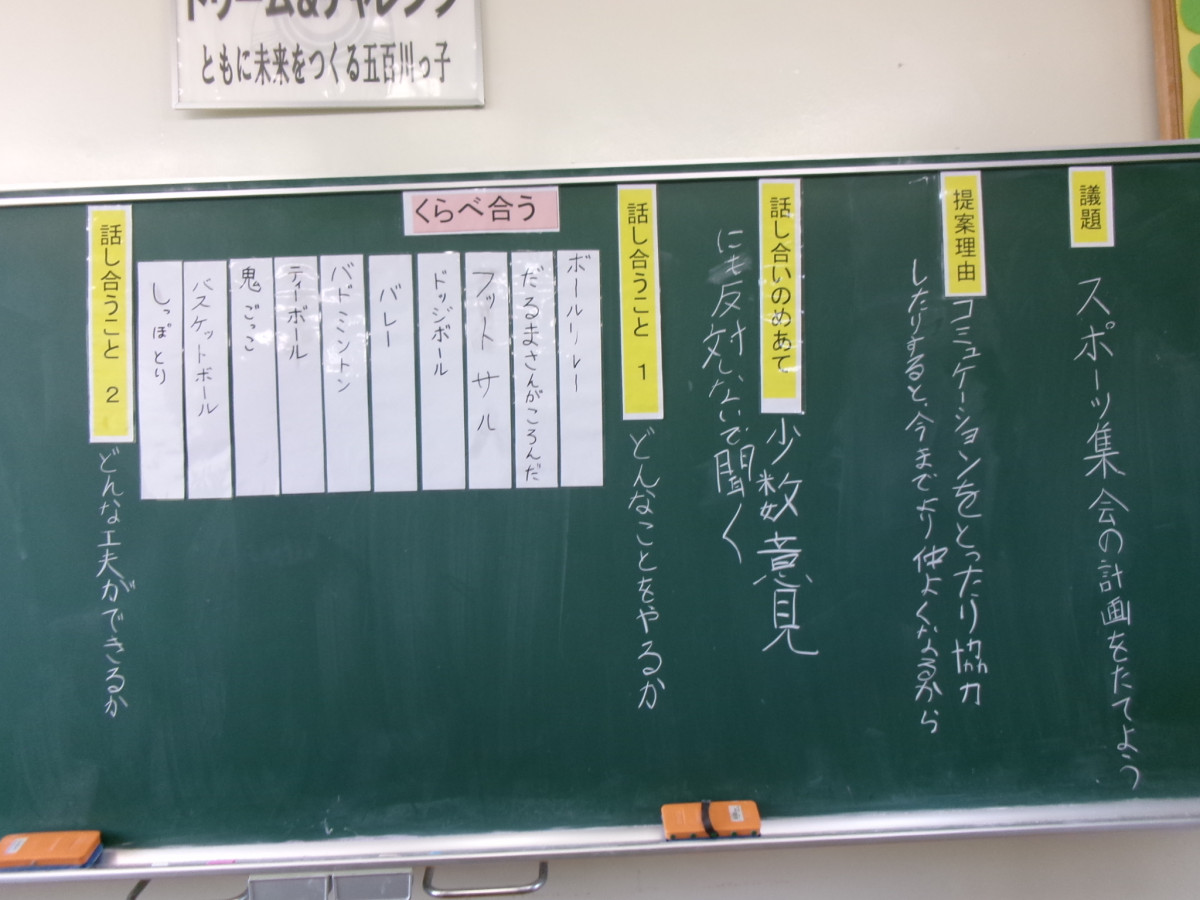 ドリーム&チャレンジ
ともに未来をつくる五百川っ子
議題
スポーツ集会の計画をたてよう
提案理由
コミュケーションをとったり協力
したりすると、今までより仲よくなるから
話し合いのめあて
少数意見
にも反対しないで聞く
話し合うこと 1
どんなことをやるか
くらべ合う
ボールリレー
だるまさんがころんだ
フットサル
ドッジボール
バレー
バドミントン
ティーボール
鬼ごっこ
バスケットボール
しっぽとり
話し合うこと 2
どんな工夫ができるか